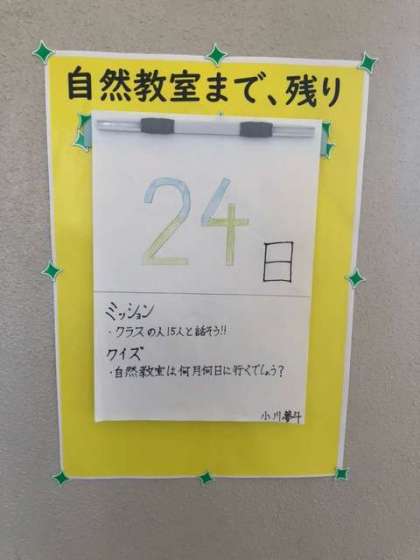 自然教室まで、残り
24日
ミッション
・クラスの人15人と話そう!!
クイズ
・自然教室は何月何日に行くでしょう?
小川